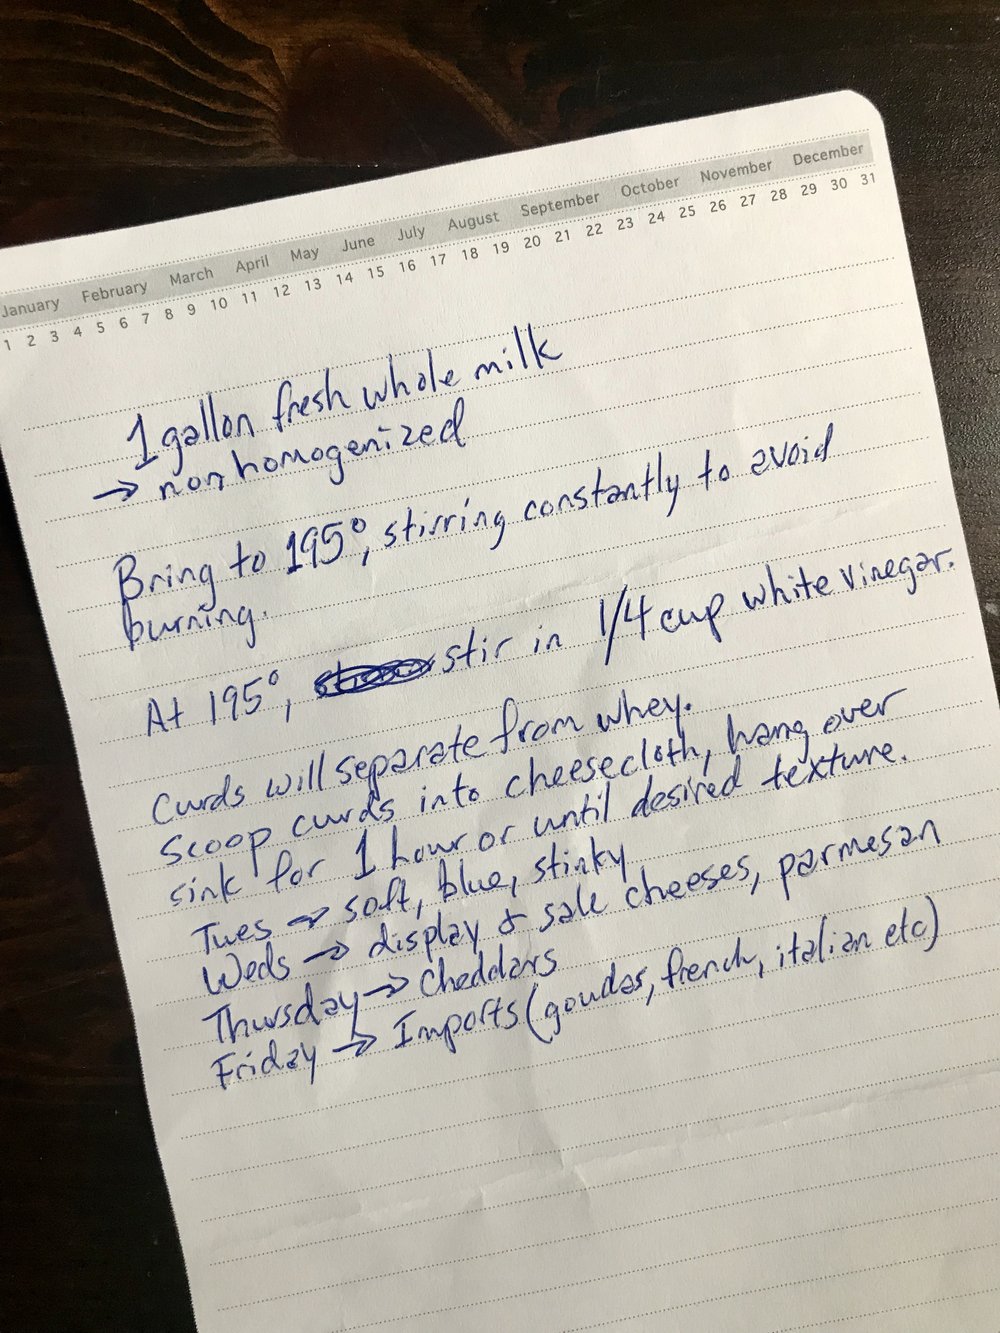 January February March April May June July August September October November December
1 2 3 4 5 6 7 8 9 10 11 12 13 14 15 16 17 18 19 20 21 22 23 24 25 26 27 28 29 30 31
1 gallon fresh whole milk
→ non homogenized
Bring to 195°, stirring constantly to avoid
burning.
At 195°, stir in 1/4 cup white vinegar.
Curds will separate from whey.
Scoop curds into cheesecloth, hang over
sink for 1 hour or until desired texture.
Tues → soft, blue, stinky
Weds → display & sale cheeses, parmesan
Thursday → Cheddars
Friday → Imports (goudas, french, italian etc)